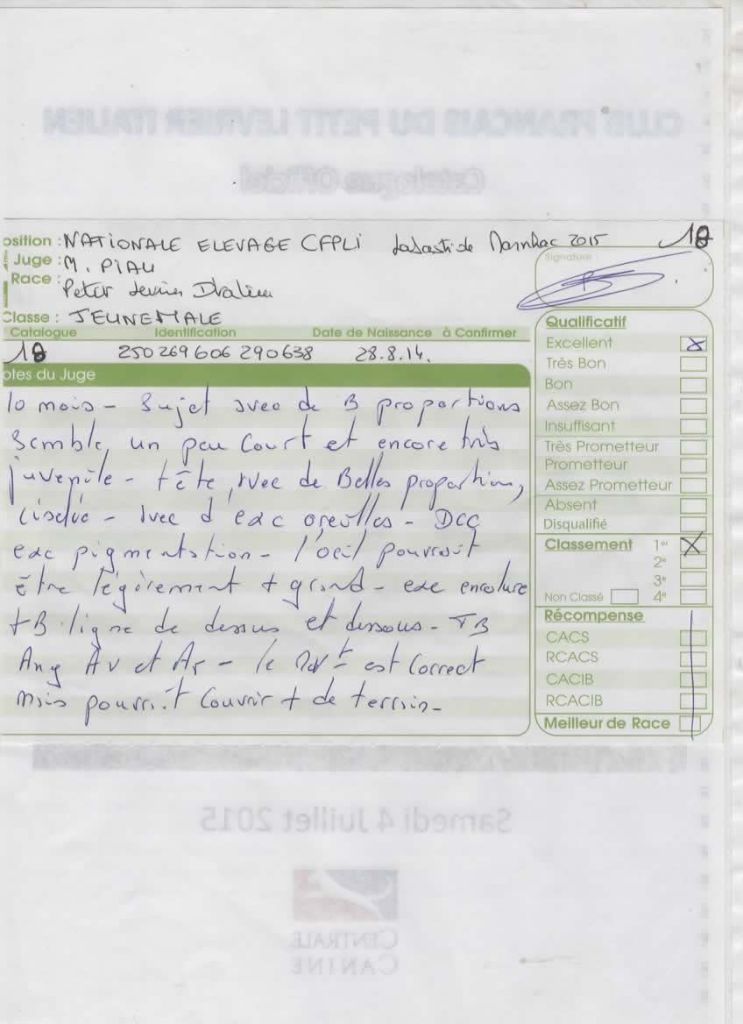 CLUB FRANCAIS DU PETIT LEVRIER ITALIEN
Catalogue Officiel
osition : NATIONALE ELEVAGE CFPLI 2015 18
Juge : M. PIAU
Race :
Classe : JEUNE MALE
Signature
Catalogue Identification Date de Naissance à Confirmer
18 250 269 606 290638 28.8.14.
otes du Juge
10 mois - Sujet avec de B proportions
semble un peu court et encore très
juvenile - tête avec de Belles proportions,
ciselée - avec d'exc oreilles -
exc pigmentation - l'oeil pourrait
être légèrement + grand - exc encolure
TB ligne de dessus et dessous - TB
Ang Av et Ar - le mvt est correct
mais pourrait couvrir + de terrain -
Qualificatif
Excellent X
Très Bon
Bon
Assez Bon
Insuffisant
Très Prometteur
Prometteur
Assez Prometteur
Absent
Disqualifié
Classement 1er X
2e
3e
Non Classé 4e
Récompense
CACS
RCACS
CACIB
RCACIB
Meilleur de Race
Samedi 4 Juillet 2015
CENTRALE
CANINE